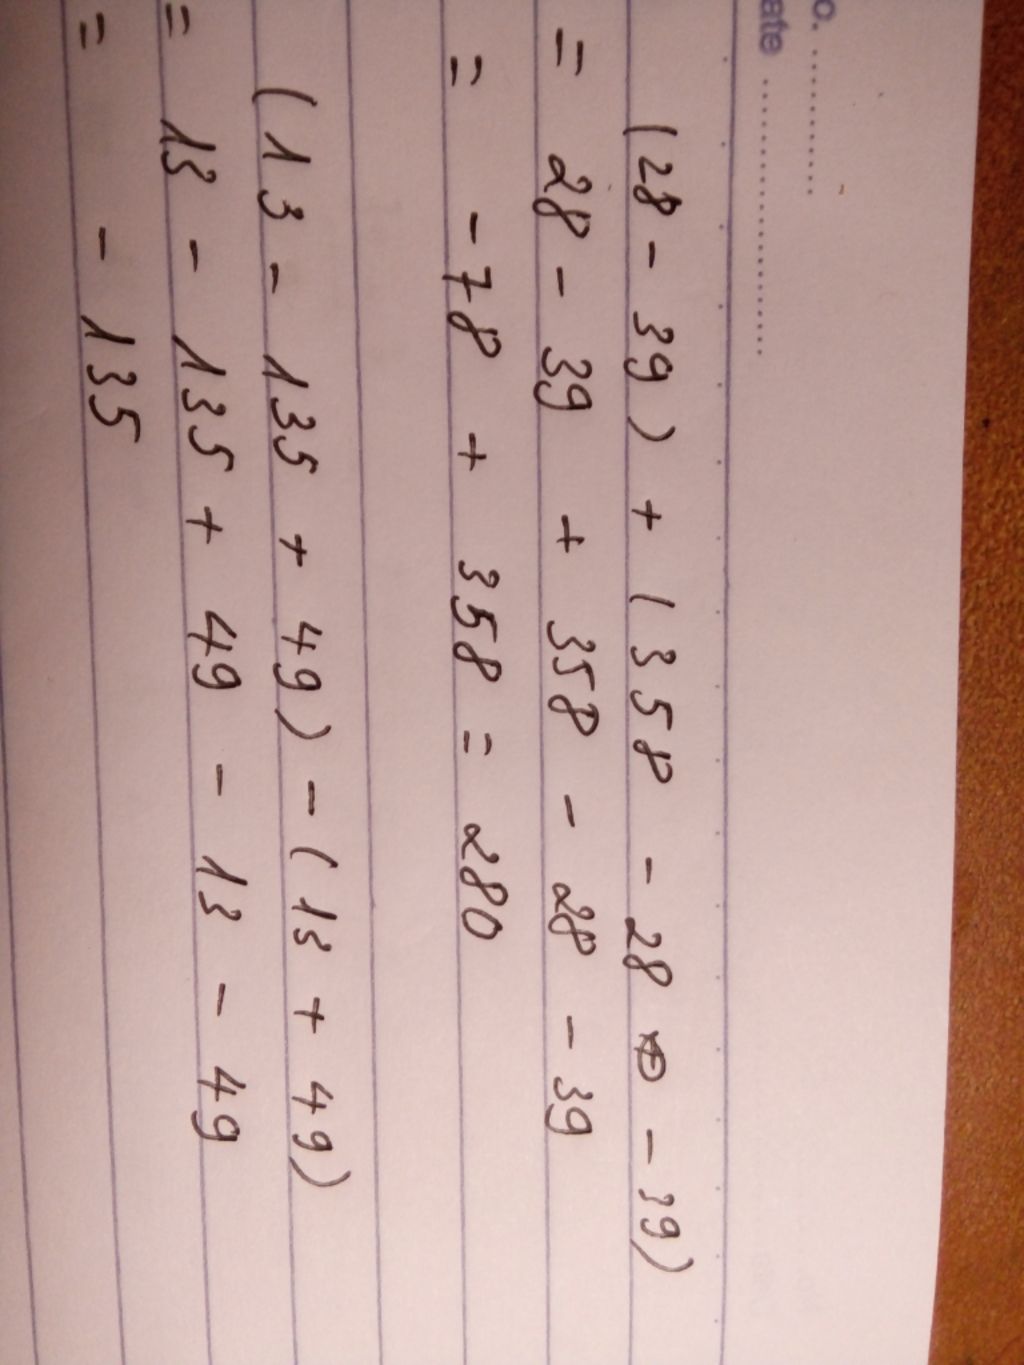 o. ............
ate ........................
(28 - 39) + (358 - 28 - 39)
= 28 - 39 + 358 - 28 - 39
= - 78 + 358 = 280
(13 - 135 + 49) - (13 + 49)
= 13 - 135 + 49 - 13 - 49
= - 135